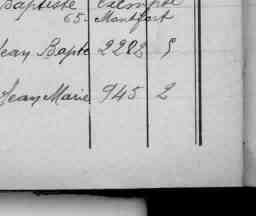 Baptiste
65 - Montfort
Jean Bapte 2282 5
Jean Marie 945 2